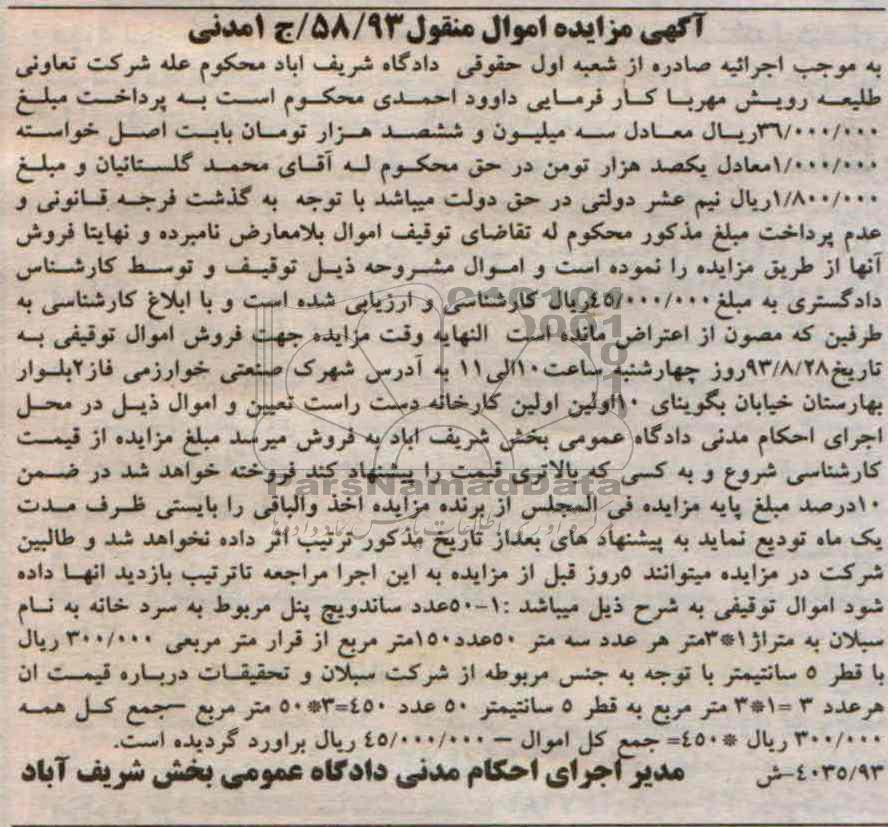 آگهی مزایده اموال منقول ۵۸/۹۳/ج ۱مدنی
به موجب اجرائیه صادره از شعبه اول حقوقی دادگاه شریف اباد محکوم عله شرکت تعاونی
طلیعه رویش مهربا کار فرمایی داوود احمدی محکوم است به پرداخت مبلغ
۳۶/۰۰۰/۰۰۰ریال معادل سه میلیون و ششصد هزار تومان بابت اصل خواسته
۱/۰۰۰/۰۰۰معادل یکصد هزار تومن در حق محکوم له آقای محمد گلستانیان و مبلغ
۱/۸۰۰/۰۰۰ریال نیم عشر دولتی در حق دولت میباشد با توجه به گذشت فرجه قانونی و
عدم پرداخت مبلغ مذکور محکوم له تقاضای توقیف اموال بلامعارض نامبرده و نهایتا فروش
آنها از طریق مزایده را نموده است و اموال مشروحه ذیل توقیف و توسط کارشناس
دادگستری به مبلغ ۴۵/۰۰۰/۰۰۰ریال کارشناسی و ارزیابی شده است و با ابلاغ کارشناسی به
طرفین که مصون از اعتراض مانده است النهایه وقت مزایده جهت فروش اموال توقیفی به
تاریخ۹۳/۸/۲۸روز چهارشنبه ساعت۱۰الی۱۱ به آدرس شهرک صنعتی خوارزمی فاز۲بلوار
بهارستان خیابان بگوینای ۱۰اولین اولین کارخانه دست راست تعیین و اموال ذیل در محل
اجرای احکام مدنی دادگاه عمومی بخش شریف اباد به فروش میرسد مبلغ مزایده از قیمت
کارشناسی شروع و به کسی که بالاتری قیمت را پیشنهاد کند فروخته خواهد شد در ضمن
۱۰درصد مبلغ پایه مزایده فی المجلس از برنده مزایده اخذ والباقی را بایستی ظرف مدت
یک ماه تودیع نماید به پیشنهاد های بعداز تاریخ مذکور ترتیب اثر داده نخواهد شد و طالبین
شرکت در مزایده میتوانند ۵روز قبل از مزایده به این اجرا مراجعه تاترتیب بازدید انها داده
شود اموال توقیفی به شرح ذیل میباشد :۱-۵۰عدد ساندویچ پنل مربوط به سرد خانه به نام
سبلان به متراژ۱*۳متر هر عدد سه متر ۵۰عدد۱۵۰متر مربع از قرار متر مربعی ۳۰۰/۰۰۰ ریال
با قطر ۵ سانتیمتر با توجه به جنس مربوطه از شرکت سبلان و تحقیقات درباره قیمت ان
هرعدد ۳ =۱*۳ متر مربع به قطر ۵ سانتیمتر ۵۰ عدد ۴۵۰=۳*۵۰ متر مربع –جمع کل همه
۳۰۰/۰۰۰ ریال *۴۵۰= جمع کل اموال – ۴۵/۰۰۰/۰۰۰ ریال براورد گردیده است.
۴۰۳۵/۹۳-ش مدیر اجرای احکام مدنی دادگاه عمومی بخش شریف آباد
ParsNamadData